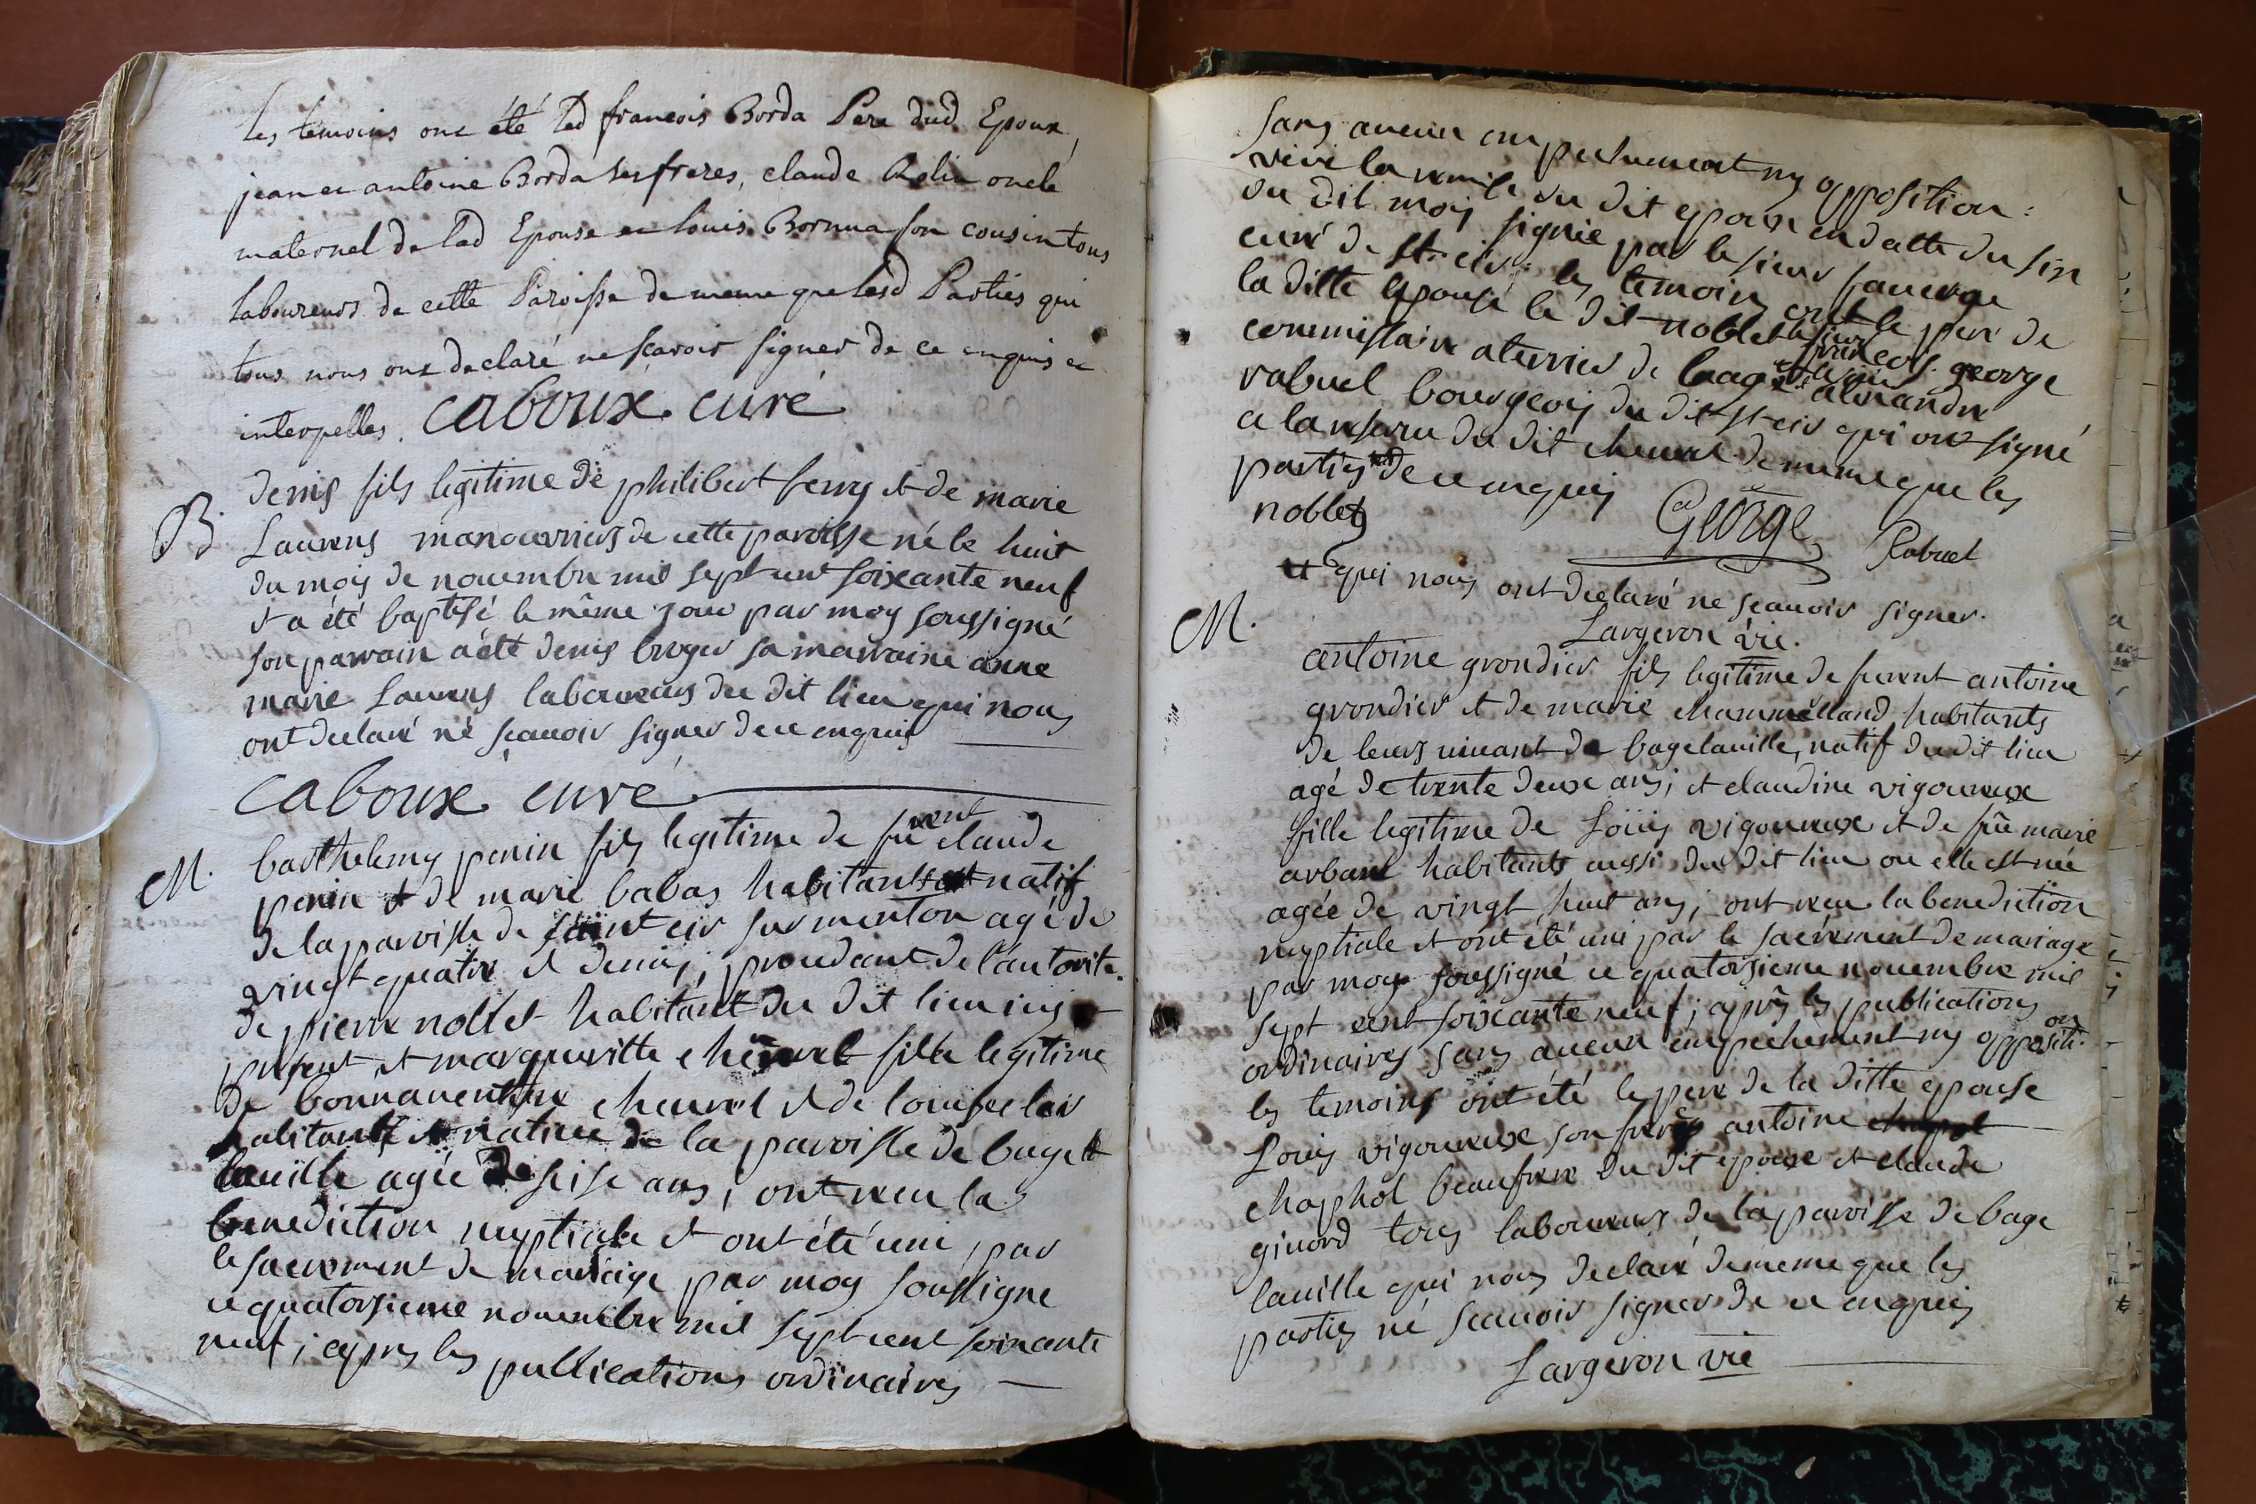 Les temoins ont été led françois Borda Pere dud Epoux,
jean et antoine Borda ses freres, claude Rolin oncle
maternel de lad Epouse et louis Bornua son cousin tous
laboureurs de cette Paroisse de meme que lesd Parties qui
tous nous ont declaré ne sçavoir signer de ce enquis et
interpellés. caboux curé
B. denis fils legitime de philibert ferry et de marie
Laurens manouvriers de cette paroisse né le huit
du mois de novembre mil sept cent soixante neuf
et a été baptisé le même jour par moy soussigné
son parrain a été denis broyer sa marraine anne
marie Laurens laboureurs du dit lieu qui nous
ont declaré né sçauoir signer de ce enquis
caboux curé
M. barthelemy perrin fils legitime de furent claude
perrin et de marie babas habitants et natif
de la paroisse de saint cir sur menton agé de
vingt quatre et demis; procedant de l'autorité
de pierre noblet habitant du dit lieu icy
present, et margueritte cheurel fille legitime
de bonnauenture cheurel et de louise
habitants et natiue de la paroisse de bagé
lauille agée de seise ans, ont reçu la
benediction nuptiale et ont été uni par
le sacrement de mariage par moy soussigné
ce quatorsieme nouembre mil sept cent soixante
neuf; après les publications ordinaires
sans aucun empechement ny opposition:
veüe la remise du dit epoux en datte du six
du dit mois signée par le sieur fauerge
curé de st cir; les temoins ont le pere de
la ditte epouse le dit noblet le sieur françois george
commissaire aterrier de bagé et le sieur alexandre
rabuel bourgeois du dit st cir qui ont signé
a la reserue du dit cheurel de meme que les
parties de ce enquis
noblet George Rabuel
et qui nous ont declaré ne sçauoir signer.
Largeron vic.
M. antoine grondier fils legitime de furent antoine
grondier et de marie chammelland habitants
de leurs uiuant de bagelauille, natif du dit lieu
agé de trente deux ans; et claudine vigoureux
fille legitime de Louis vigoureux et de füe marie
arband habitants aussi du dit lieu ou elle est née
agée de vingt huit ans, ont reçu la benediction
nuptiale et ont été uni par le sacrement de mariage
par moy soussigné ce quatorsieme nouembre mil
sept cent soixante neuf; après les publications
ordinaires sans aucun empechement ny oppositi.on
les temoins ont été le pere de la ditte epouse
Louis vigoureux son frere antoine
chaphol beaufrere du dit epoux et claude
giuord tous laboureurs de la paroisse de bage
lauille qui nous declaré de meme que les
parties né sçauoir signer de ce enquis
Largeron vic